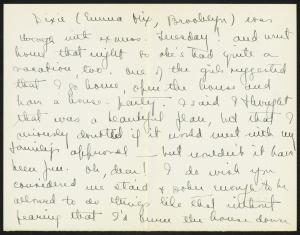 Dixie (Emma Dix, Brooklyn) was
through with exams Tuesday! and went
home that night so she's had quite a
vacation, too. One of the girls suggested
that I go home, open the house and
have a house-party. I said I thought
that was a beautiful plan, but that I
seriously doubted if it would meet with my
family's approval — but wouldn't it have
been fun. Oh, dear! I do wish you
considered me staid & sober enough to be
allowed to do things like that without
fearing that I'd burn the house down